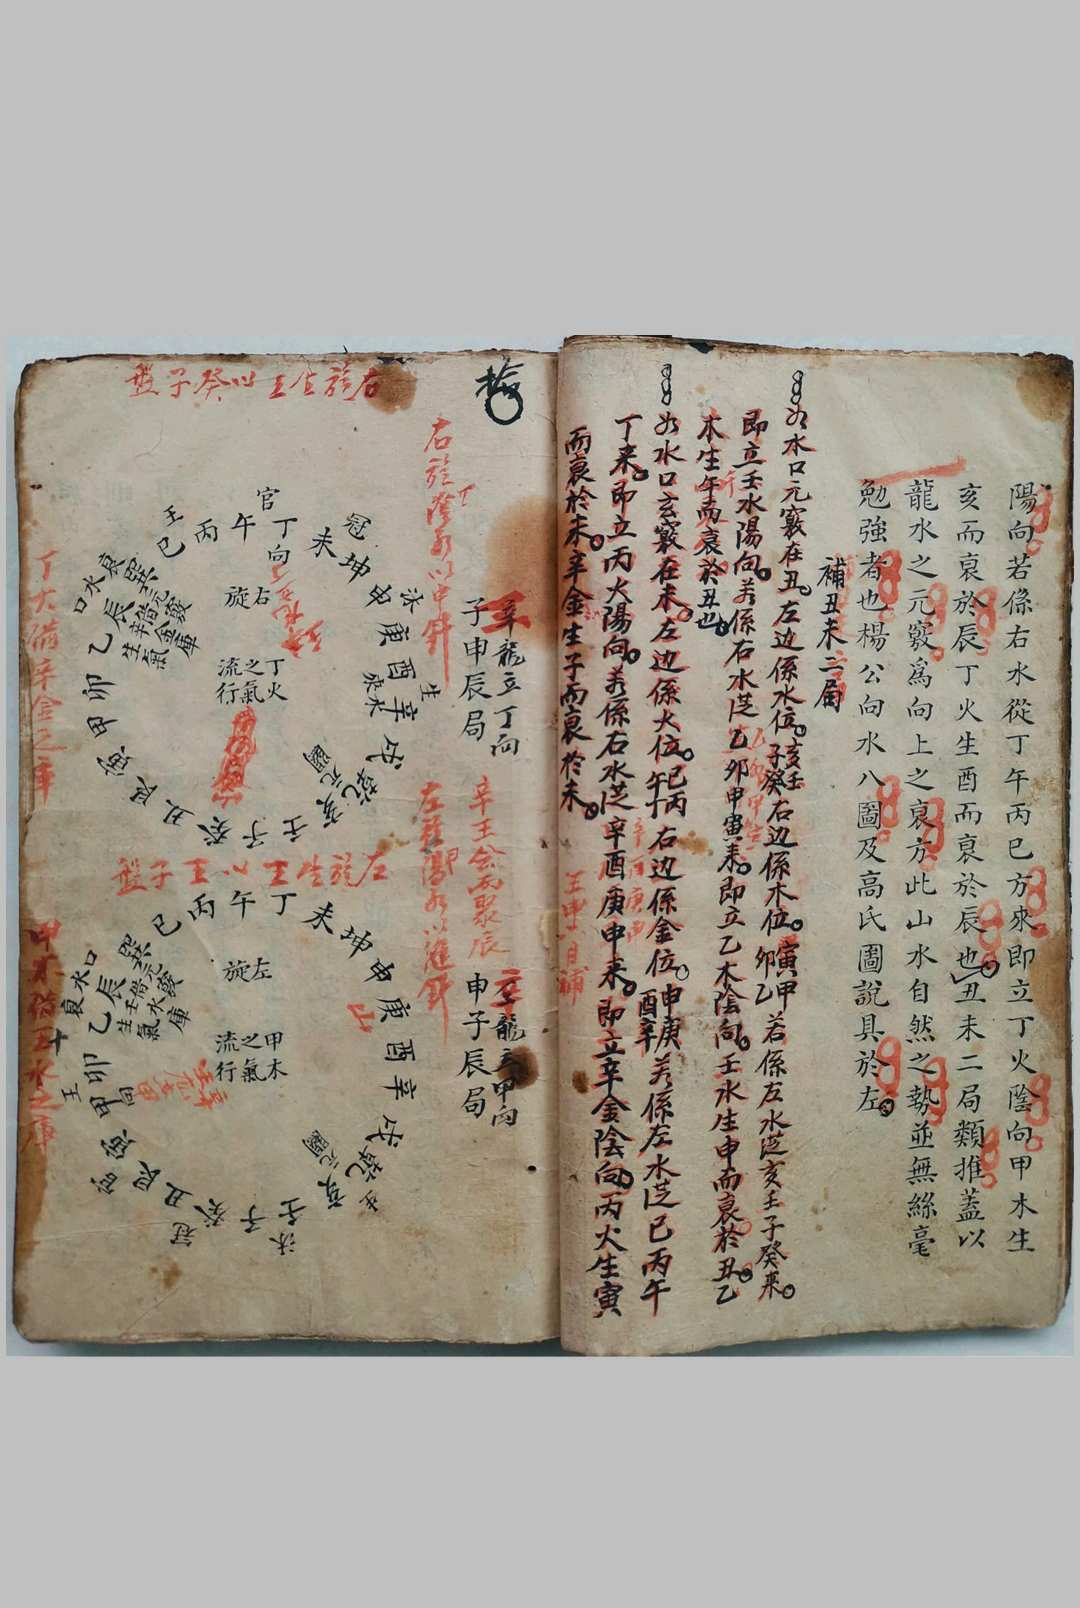 陽向若係右水從丁午丙巳方來即立丁火陰向甲木生
亥而衰於辰丁火生酉而衰於辰也丑未二局類推蓋以
龍水之元竅為向上之衰方此山水自然之勢並無絲毫
勉強者也楊公向水八圖及高氏圖說具於左
補丑未二局
如水口元竅在丑左边係水位亥壬子癸右边係木位寅甲卯乙若係左水從亥壬子癸來
即立壬水陽向若係右水從乙卯甲寅來即立乙木陰向壬水生申而衰於丑乙
木生午而衰於丑也
如水口玄竅在未左边係火位巳丙午丁右边係金位申庚酉辛若係左水從巳丙午
丁來即立丙火陽向若係右水從辛酉庚申來即立辛金陰向丙火生寅
而衰於未辛金生子而衰於未
辛龍立丁向
子申辰局
辛壬會而聚辰
辛龍立甲向
申子辰局
右旋生壬以癸子盤
官
冠
王
丁向
午
丙
巳
未
坤
申
庚
酉
辛
戌
乾
亥
壬
子
癸
丑
艮
寅
甲
卯
乙
辰
巽
沐
生
來水
元關
水口
衰
元竅
借金庫
辛生氣
右旋
丁火
之氣
流行
丁火借辛金之庫
左旋生王以壬子盤
丁
午
丙
巳
未
坤
申
庚
酉
辛
戌
乾
亥
壬
子
癸
丑
艮
寅
甲向
卯
乙
辰
巽
水口
衰
元竅
借水庫
壬生氣
元關
生
沐
冠
王
左旋
甲木
之氣
流行
甲木借壬水之庫